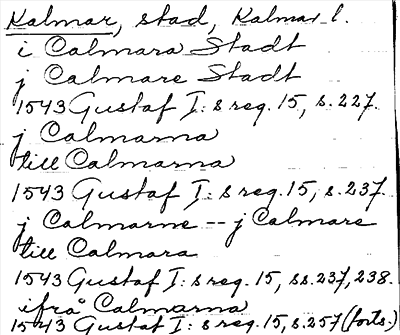 Kalmar, stad, Kalmar l.
i Calmara Stadt
j Calmare Stadt
1543 Gustaf I:s reg. 15, s. 227.
j Calmarna
till Calmarna
1543 Gustaf I:s reg. 15, s. 237.
j Calmarne -- j Calmare
till Calmara
1543 Gustaf I:s reg. 15, ss. 237, 238.
ifrå Calmarna
1543 Gustaf I:s reg. 15, s. 357 (forts.)